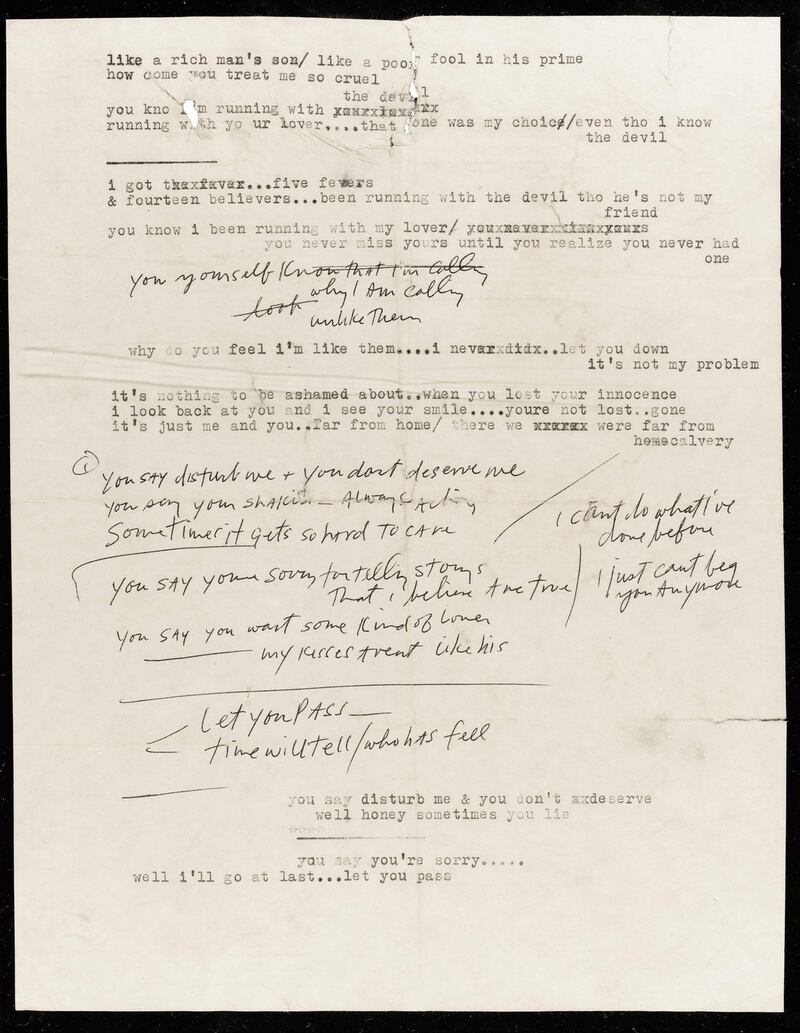 like a rich man's son/ like a poor fool in his prime
how come you treat me so cruel
the devil
you kno I'm running with
running with yo ur lover....that one was my choice/even tho i know
the devil
i got thexfever...five fevers
& fourteen believers...been running with the devil tho he's not my
friend
you know i been running with my lover/ youxneverxximxxyours
you never miss yours until you realize you never had
one
you yourself know that I'm calling
why I am calling
look
unlike them
why do you feel i'm like them....i neverxdidx..let you down
it's not my problem
it's nothing to be ashamed about..when you lost your innocence
i look back at you and i see your smile....youre not lost..gone
it's just me and you..far from home/ there we xxxxxx were far from
homecalvery
1
you say disturb me + you dont deserve me
you say your shakin — Always Acting
Sometimes it gets so hard to care
I can't do what I've
done before
you say youre sorry for telling storys
that i believe are true
I just cant beg
you Anymore
you say you want some kind of lover
my kisses arent like his
let you PASS —
time will tell/who has fell
you say disturb me & you don't xxdeserve
well honey sometimes you lie
you say you're sorry.....
well i'll go at last...let you pass